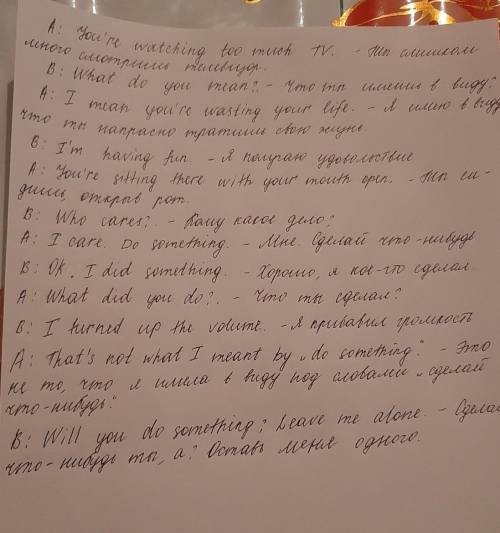 A: You're watching too much TV. - Ты слишком
много смотришь телевизор.
B: What do you mean? - Что ты имеешь в виду?
A: I mean you're wasting your life. - Я имею в виду
что ты напрасно тратишь свою жизнь.
B: I'm having fun. - Я получаю удовольствие
A: You're sitting there with your mouth open. - Ты си-
дишь, открыв рот.
B: Who cares?. - Кому какое дело?
A: I care. Do something. - Мне. Сделай что-нибудь
B: OK. I did something. - Хорошо, я кое-что сделал.
A: What did you do?. - Что ты сделал?
B: I turned up the volume. - Я прибавил громкость
A: That's not what I meant by „do something". - Это
не то, что я имела в виду под словами „сделай
что-нибудь".
B: Will you do something? Leave me alone. - Сделай
что-нибудь ты, а? Оставь меня одного.